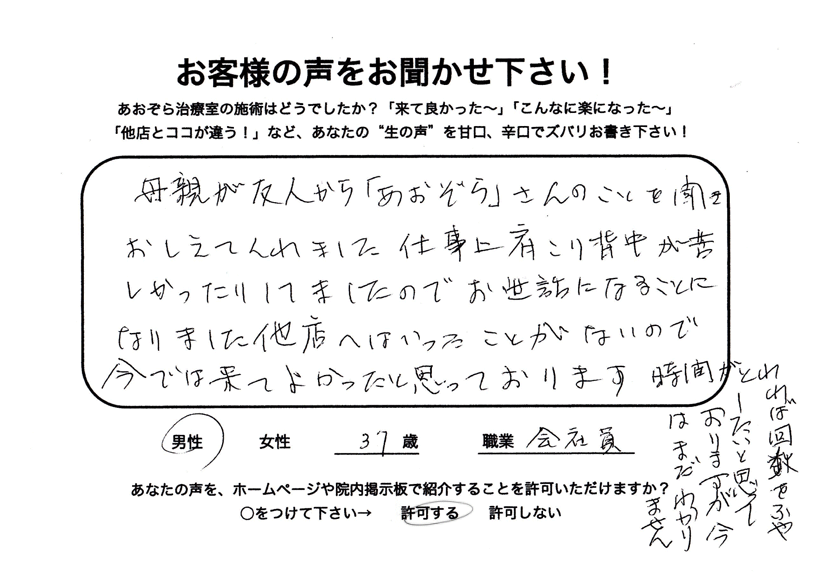 お客様の声をお聞かせ下さい！
あおぞら治療室の施術はどうでしたか？「来て良かった〜」「こんなに楽になった〜」
「他店とココが違う！」など、あなたの“生の声”を甘口、辛口でズバリお書き下さい！
母親が友人から「あおぞら」さんのことを聞き
おしえてくれました 仕事上肩こり背中が苦
しかったりしてましたのでお世話になることに
なりました他店へはいったことがないので
今では来てよかったと思っております 時間がとれ
れば回数をふや
したいと思って
おりますが今
はまだわかり
ません
男性 女性 37歳 職業 会社員
あなたの声を、ホームページや院内掲示板で紹介することを許可いただけますか？
○をつけて下さい→ 許可する 許可しない